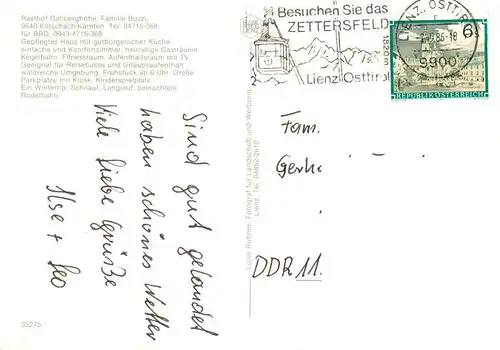 Rasthof Gailberghöhe, Familie Buzzi,
9640 Kötschach-Kärnten, Tel. 04715-368,
für BRD: 0043-4715-368
Gepflegtes Haus mit gutbürgerlicher Küche
einfache und Komfortzimmer, heimelige Gasträume
Kegelbahn, Fitnessraum, Aufenthaltsraum mit TV
Geeignet für Reisebusse und Urlaubsaufenthalt
waldreiche Umgebung, Frühstück ab 6 Uhr. Große
Parkplätze mit Kiosk, Kinderspielplatz.
Ein Wintertip: Schilauf, Langlauf, beleuchtete
Rodelbahn.
Sind gut gelandet
haben schönes Wetter
Viele liebe Grüße
Ilse + Leo
35275
Foto: Fotograf für Landschaft und Werbung,
Lienz, Tel. 04852-2610
Besuchen Sie das
ZETTERSFELD
1820m
Lienz Osttirol
LIENZ, OSTTIROL
9900
6
REPUBLIK ÖSTERREICH
Fam.
Gerh
DDR 11.